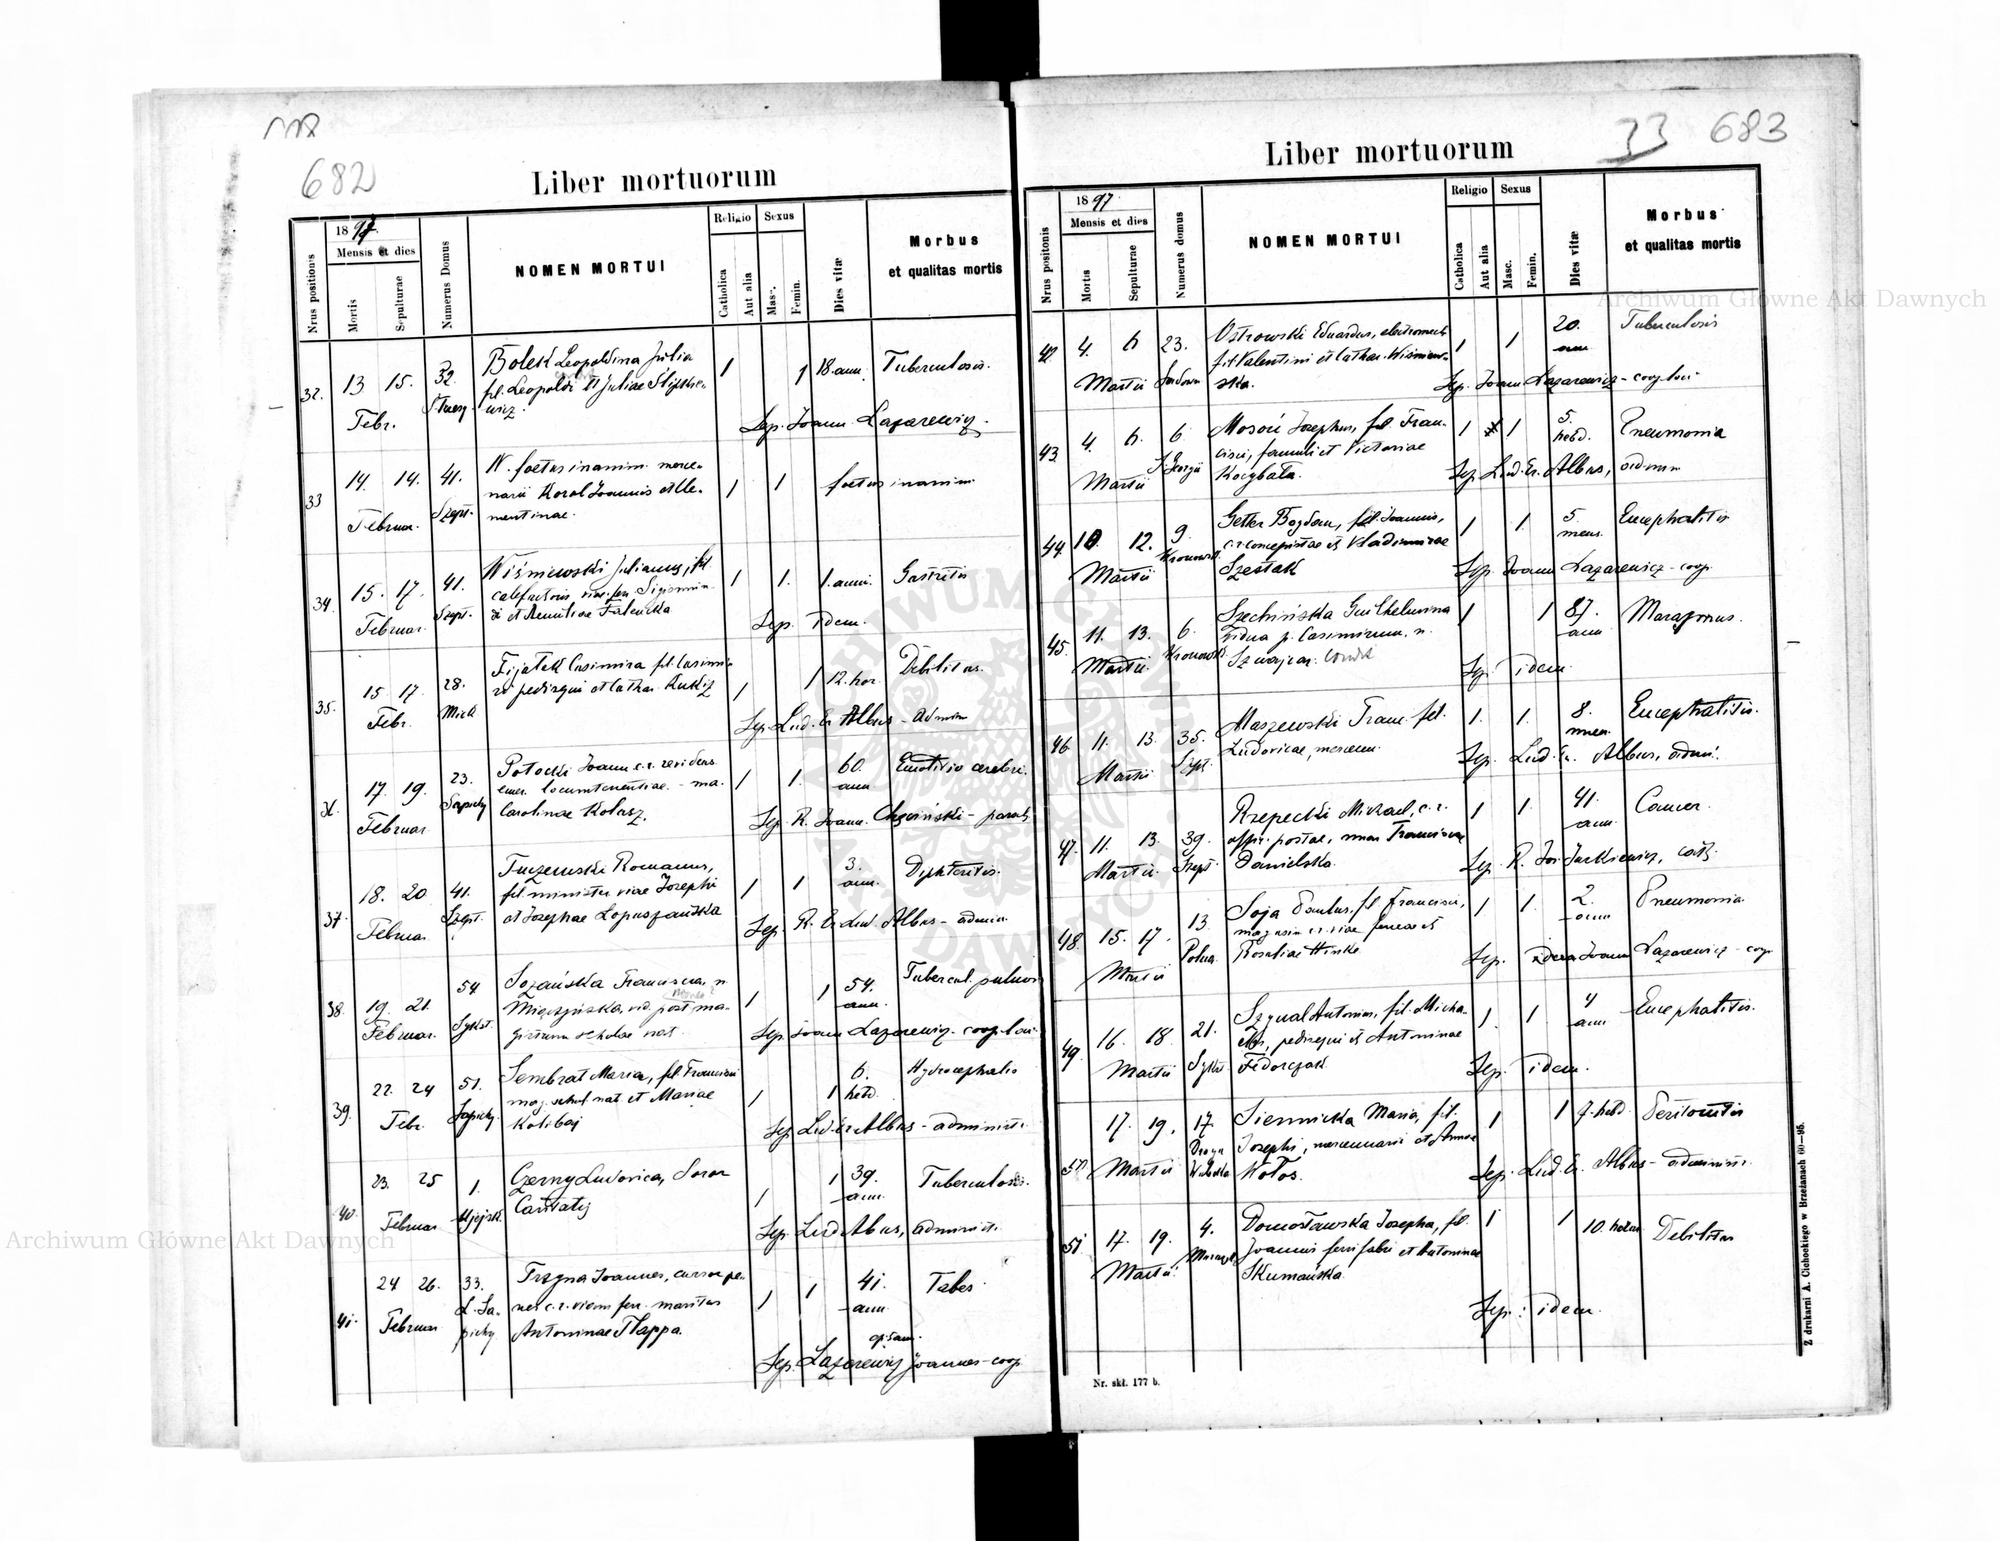 118
682
Liber mortuorum
Nrus positionis
1897.
Mensis et dies
Mortis
Sepulturae
Numerus Domus
NOMEN MORTUI
Religio
Catholica
Aut alia
Sexus
Masc.
Femin.
Dies vitæ
Morbus
et qualitas mortis
32. 13 15. 32. Bolek Leopoldina Julia 1 1 18 ann. Tuberculosis.
fil. Leopoldi et Juliae
Febr. wicz.
Sep. Joann. Lazarewicz.
33 14. 14. 41. N. foetus inanim. merce- 1 1 foetus inanim.
narii Karol Joannis et Cle-
Februar. Szept. mentinae.
34. 15. 17. 41. Wiśniewski Julianus, fil. 1 1. 1. anni. Gastritis
Sigismun-
Februar. Szept. di et Aemiliae Falencka
Sep. idem.
35. 15 17. 28. Fijałek Casimira fil. Casimi- 1 1 12. hor. Debilitas.
ri pedisequi et Cathar. Kukiz
Febr. Mick
Sep. Lud. Er. Albus - admin
17. 19. 23. Potocki Joann. c.r. revidens 1 1. 60. ann
emer. locumtenentiae. - ma.
Februar. Sapiehy Carolinae Kolasz.
Sep. R. Joann. Chęciński - paroch.
37. 18. 20 41. Romanus, 1 1 3. ann. Dyphteritis.
fil. ministri viae Josephi
Februar. Szept. et Josephae Łopuszańska
Sep. R. Er. Lud. Albus - admin.
38. 19. 21. 54 Sozańska Francisca, n. 1 1 54. ann. Tubercul. pulmon
vid. post ma-
Februar. Sykst. gistrum scholae nat.
Sep. Joann Lazarewicz - coop.
39. 22. 24 51. Sembrat Maria, fil. Francisci 1 1 6. hebd. Hydrocephalis
mag. schol. nat. et Mariae
Febr. Sapiehy Kolibaj
Sep. Lud. Er. Albus - administr.
40. 23. 25 1. Czerny Ludovica, Soror 1 1 39. ann. Tuberculosis.
Caritatis
Februar Ujejsk.
Sep. Lud Albus, administr.
41. 24 26. 33. Trzyna Joannes, cursor pe- 1 1 41 ann. Tabes.
L. Sa- nes c.r. viam ferr. maritus
Februar piehy. Antoninae Tlappa.
Sep. Lazarewicz Joannes - coop.
33 683
Liber mortuorum
Nrus positonis
1897.
Mensis et dies
Mortis
Sepulturae
Numerus domus
NOMEN MORTUI
Religio
Catholica
Aut alia
Sexus
Masc.
Femin.
Dies vitæ
Morbus
et qualitas mortis
42. 4. 6 23. Ostrowski Eduardus, electromech 1 1 20. ann. Tuberculosis
f. Valentini et Cathar. Wiśniew-
Martii ska.
Sep. Joann Lazarewicz - coop.
43. 4. 6. 6. Josephus, fil. Fran- 1 1 5. hebd. Pneumonia
cisci, famuli et Victoriae
Martii S. Georgii Kocybała.
Sep. Lud. Er. Albus, admin
44. 10. 12. 9. Getter Bogdan, fil. Joannis, 1 1. 5. mens. Encephalitis
c.r. concepistae et Vladimirae
Martii Szestak
Sep. Joann Lazarewicz - coop.
45. 11. 13. 6. Szechińska Guilhelmina 1 1 87. ann. Marasmus.
vidua p. Casimirum. n.
Martii. Szwajcar.
Sep. idem.
46. 11. 13. 35. Maszewski Franc. fil. 1. 1. 8. mens. Encephalitis.
Ludovicae, mercenn.
Martii Szept.
Sep. Lud. Er. Albus, admin.
47. 11. 13. 39. Rzepecki Michael, c.r. 1 1. 41. ann. Cancer.
offic. postae, mar. Francisca
Martii. Szept. Danielska.
Sep. R. Jos. Jurkiewicz, cath.
48. 15. 17. 13 Soja Paulus. fil. Francisci, 1 1. 2. ann Pneumonia.
magasin. c.r. viae ferreae et
Martii Polna. Rosaliae Hinke
Sep. Joann Lazarewicz - coop
49. 16. 18. 21. Szynal Antonius, fil. Micha- 1. 1 4 ann Encephalitis.
elis, pedisequi et Antoninae
Martii Sykst Fedorczak.
Sep. idem.
50. 17. 19. 17. Siennicka Maria, fil. 1 1 7. hebd. Peritonitis
Droga Josephi, mercennarii et Annae
Martii Wulecka Wołos.
Sep. Lud. Er. Albus - administr.
51. 17. 19. 4. Domosławska Josepha, fil. 1 1 10. horar. Debilitas
Joannis ferri fabri et Antoninae
Martii. Skumańska.
Sep. : idem.
Nr. skł. 177 b.
Z drukarni A. Cichockiego w Brzeżanach 60—95.
Archiwum Główne Akt Dawnych
Archiwum Główne Akt Dawnych
ARCHIWUM GŁÓWNE AKT DAWNYCH